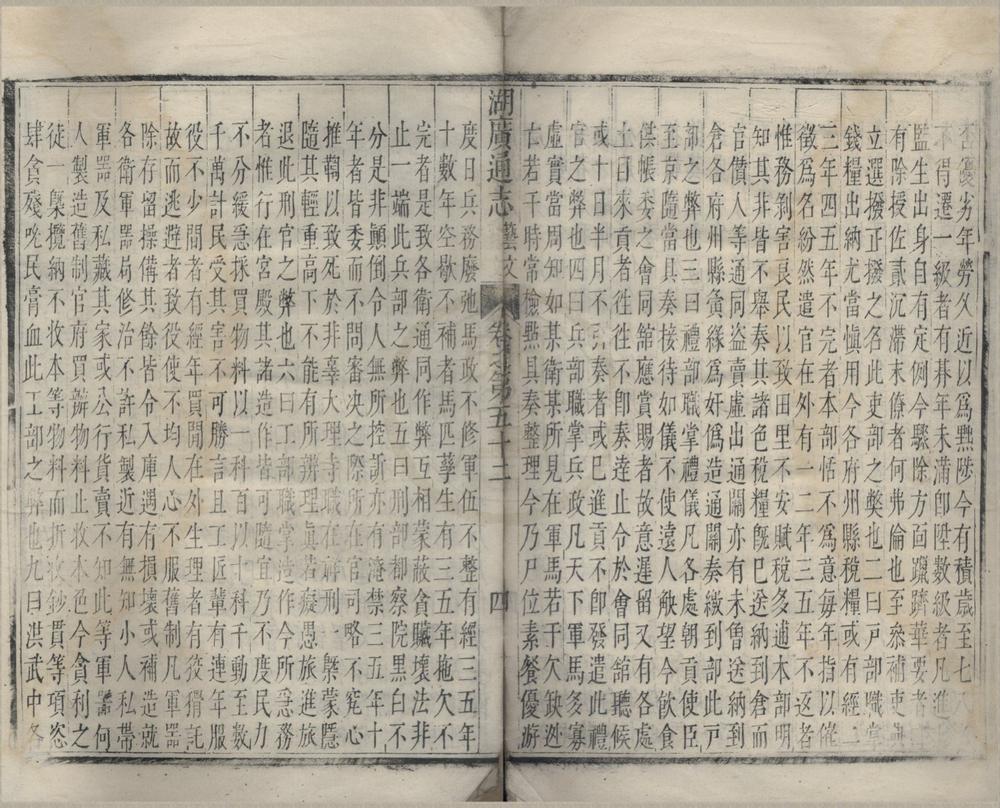 否優劣年勞久近以爲黜陟今有積歲至七
不得遷一級者有朞年未滿卽陞數級者凡進
監生出身自有定例今驟除方面躐躋華要者
有除授佐貳沉滯末僚者何弗倫也至叅補吏
立選撥正撥之各此吏部之弊也二曰戸部職掌
錢糧出納尤當愼用今各府州縣稅糧或有經一
三年四五年不完者本部恬不爲意每年指以催
徵爲名紛然遣官在外有一二年三五年不返者
惟務剝害良民以致田里不安賦稅多逋本部明
知其非皆不舉奏其諸色稅糧旣巳送納到倉而
官儹人等通同盗賣虛出通關亦有未曽送納到
倉各府州縣夤緣爲奸僞造通關奏繳到部此戸
部之弊也三曰禮部職掌禮儀凡各處朝貢使臣
至京隨當具奏接待如儀不使遠人觖望今飮食
供帳委之會同舘應賞賜者故意遲留又有各處
土日來貢者徃徃不卽奏逹止令於會同舘聽候
或十日半月不引奏者或已進貢不卽發遣此禮
官之弊也四曰兵部職掌兵政凡天下軍馬多寡
虛實當周知如某衞某所見在軍馬若干欠缺迯
亡若干時常檢㸃具奏整理今乃尸位素餐優游
湖廣通志 藝文 卷之第五十二 四
度日兵務廢弛馬政不修軍伍不整有經三五年
十數年空歇不補者馬匹孳生有三五年拖欠不
完者是致各衞通同作弊互相蒙蔽貪贜壞法非
止一端此兵部之弊也五曰刑部都察院黑白不
分是非顚倒令人無所控訴亦有淹禁三五年十
年者皆委而不問審决之際所在官司略不究心
推鞫以致死於非辜大理寺職在詳刑一槩蒙隱
隨其輕重高下不能有所辨理眞若癡愚旅進旅
退此刑官之弊也六曰工部職掌造作今所急務
者惟行在宮殿其諸造作皆可隨宜乃不度民力
不分緩急採買物料以一科百以十科千動至數
千萬計民受其害不可勝言且工匠軰有連年服
役不少間者有經年買閒在外生理者有役猾託
故而逃避者致役使不均人心不服舊制凡軍噐
除存留操備其餘皆令入庫遇有損壞或補造就
各衞軍噐局修治不許私製近有無知小人私帶
軍噐及私藏其家或公行貨賣不知此等軍噐何
人製造舊制官府買辦物料止收本色今貪利之
徒一槩攬納不收本等物料而折收鈔貫等項恣
肆貪殘吮民膏血此工部之弊也九曰洪武中各